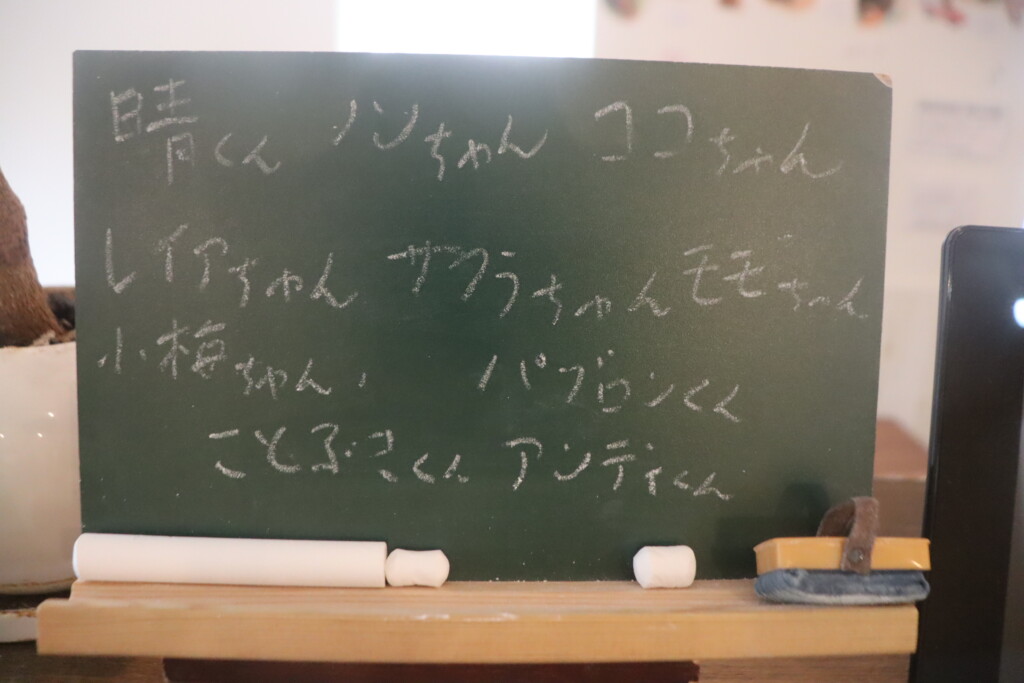 晴くん ノンちゃん ココちゃん
レイアちゃん サクラちゃん モモちゃん
小梅ちゃん、 パブロンくん
ことぶきくん アンディくん